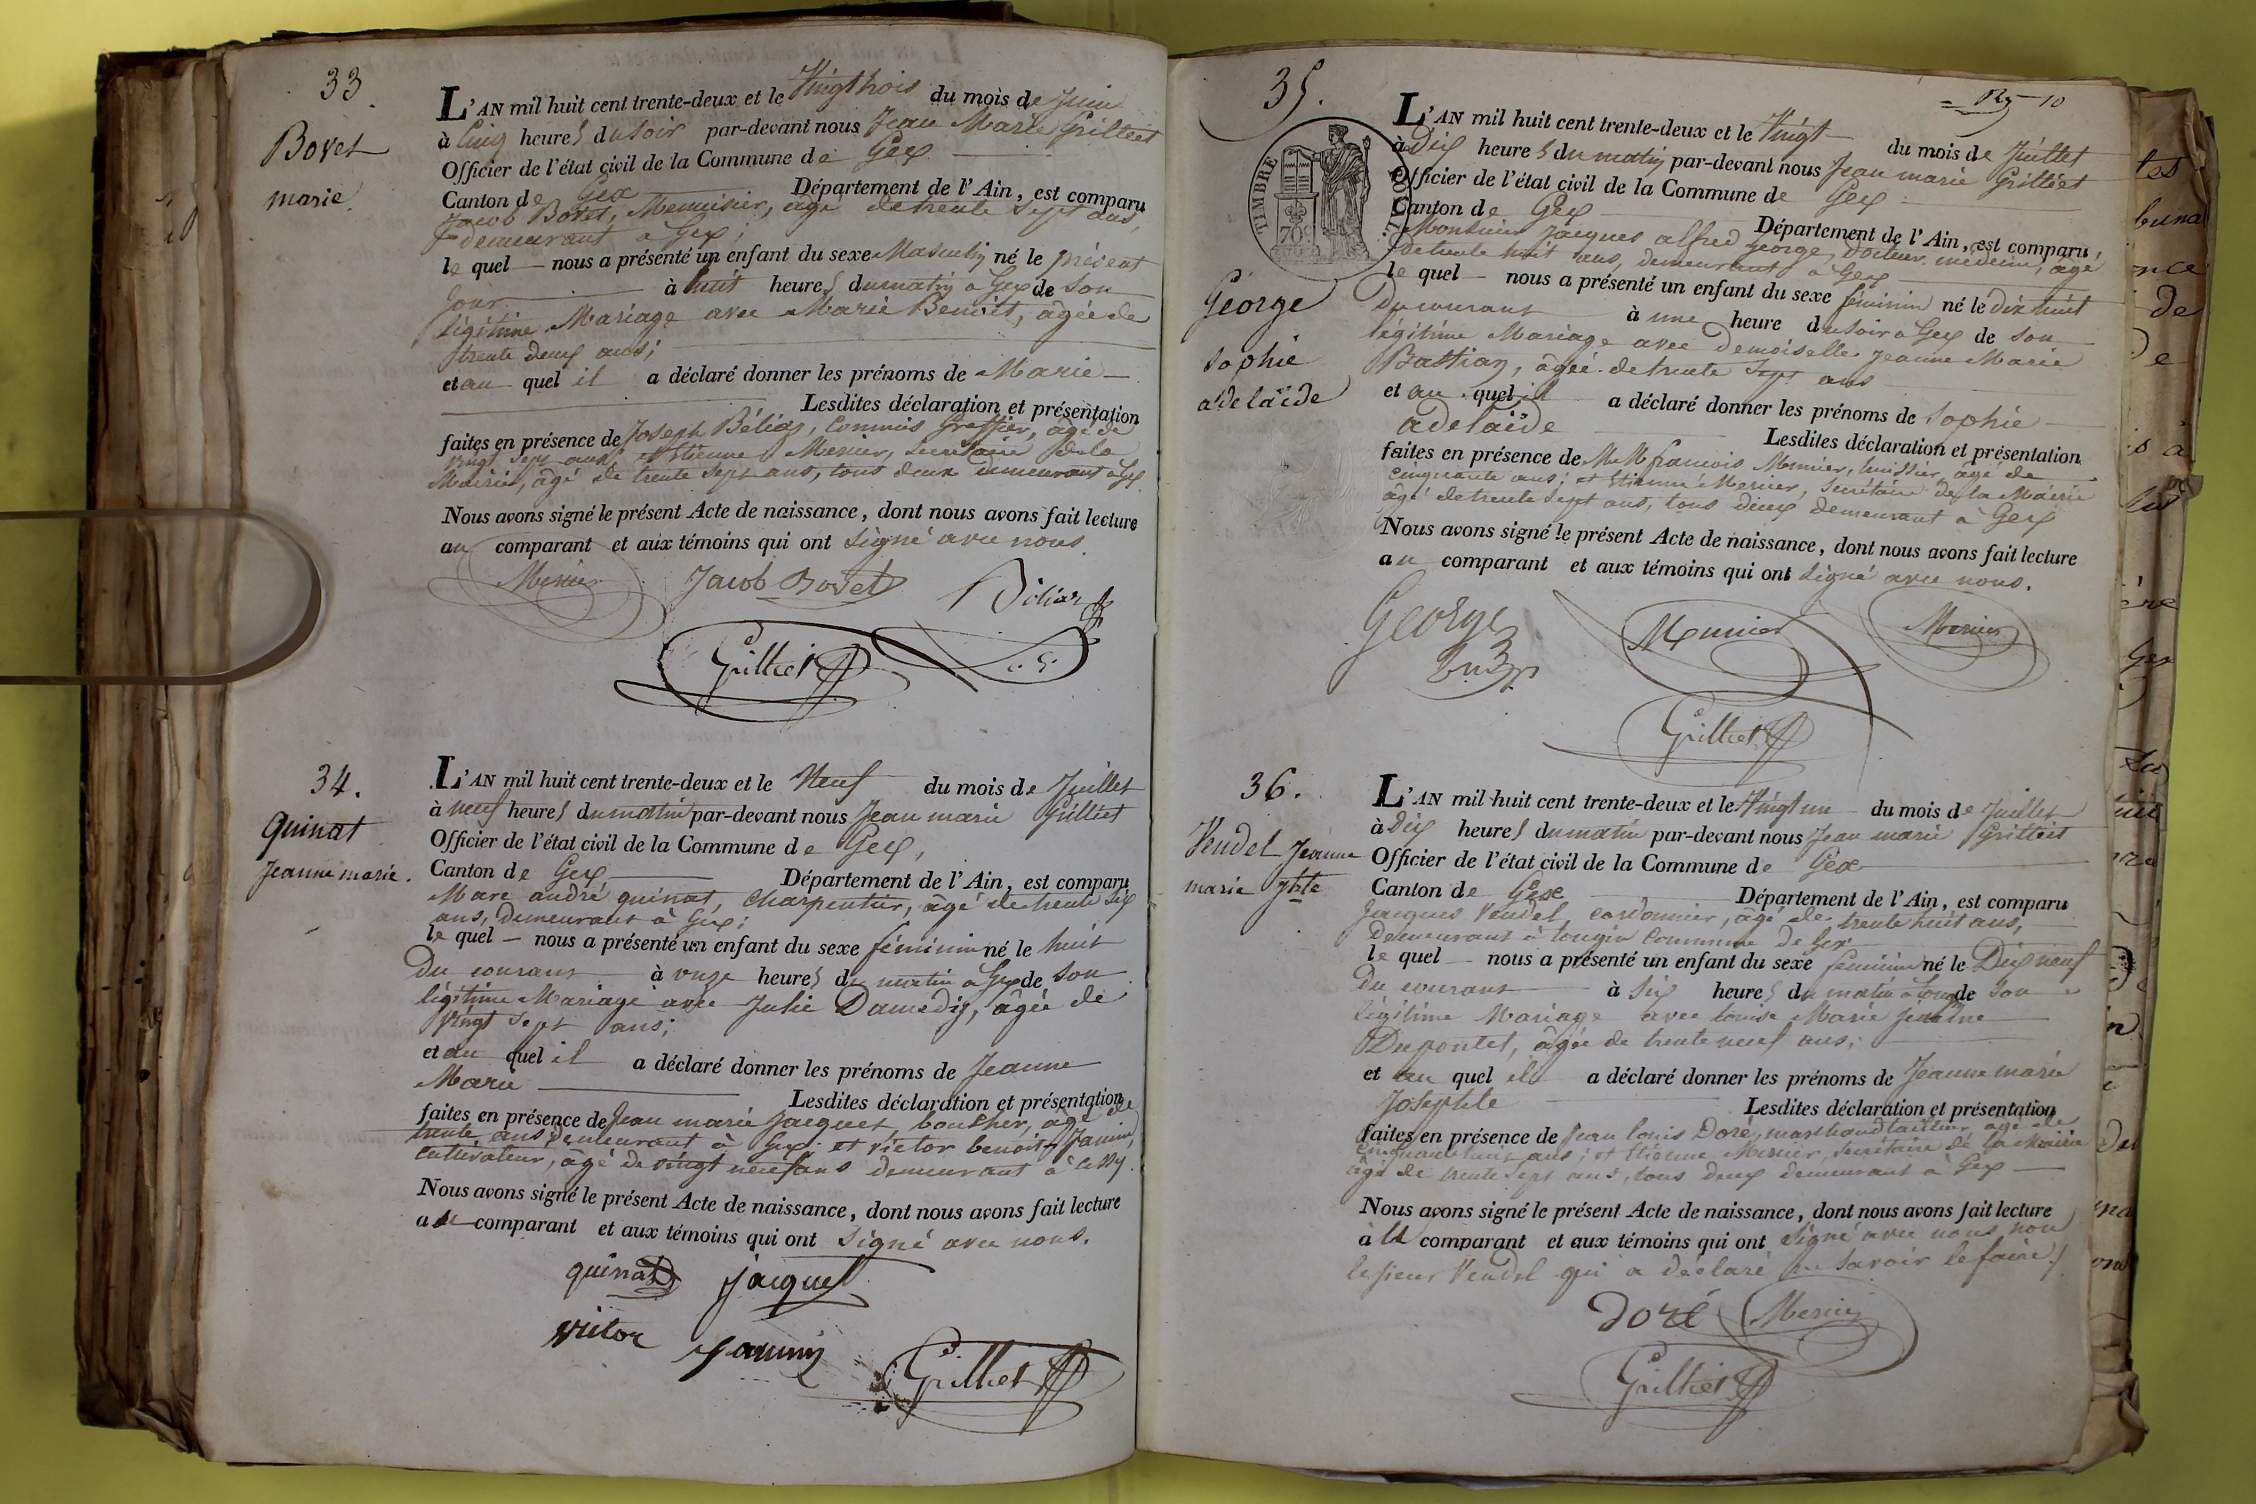 33.
Bovet
marie.
L'AN mil huit cent trente-deux et le Vingt trois du mois de Juin
à Cinq heures du soir par-devant nous Jean Marie Grilliet
Officier de l'état civil de la Commune de Gex
Canton de Gex Département de l'Ain, est comparu
Jacob Bovet, Menuisier, âgé de trente sept ans,
demeurant à Gex;
le quel nous a présenté un enfant du sexe Masculin né le présent
jour à huit heures du matin à Gex de son
légitime Mariage avec Marie Benoit, agée de
trente deux ans;
et au quel il a déclaré donner les prénoms de Marie
Lesdites déclaration et présentation
faites en présence de Joseph Béliaz, Commis Greffier, âgé de
vingt sept ans, et Etienne Mercier, Secrétaire de la
Mairie, âgé de trente sept ans, tous deux demeurant à Gex
Nous avons signé le présent Acte de naissance, dont nous avons fait lecture
au comparant et aux témoins qui ont Signé avec nous.
Mercier Jacob Bovet Béliaz
Grilliet
34.
quinat
Jeanne marie.
L'AN mil huit cent trente-deux et le Neuf du mois de Juillet
à neuf heures du matin par-devant nous Jean marie Grilliet
Officier de l'état civil de la Commune de Gex,
Canton de Gex Département de l'Ain, est comparu
Marc andré quinat, charpentier, âgé de trente six
ans, demeurant à Gex;
le quel nous a présenté un enfant du sexe féminin né le huit
Du courant à onze heures du matin à Gex de son
légitime Mariage avec Julie Damedij, âgée de
vingt sept ans;
et au quel il a déclaré donner les prénoms de Jeanne
Marie
Lesdites déclaration et présentation
faites en présence de Jean marie Jacquet, boucher, âgé de
trente ans, demeurant à Gex; et victor benoit Janin,
cultivateur, âgé de vingt neuf ans demeurant à Cessy.
Nous avons signé le présent Acte de naissance, dont nous avons fait lecture
au comparant et aux témoins qui ont Signé avec nous.
quinat Jacquet
victor Jannin
Grilliet
35.
10
TIMBRE ROYAL
70c
George
Sophie
adelaïde
L'AN mil huit cent trente-deux et le Vingt du mois de Juillet
à Dix heures du matin par-devant nous Jean marie Grilliet
Officier de l'état civil de la Commune de Gex
Canton de Gex Département de l'Ain, est comparu,
Monsieur Jacques alfred George, Docteur médecin, âgé
de trente huit ans, demeurant à Gex
le quel nous a présenté un enfant du sexe féminin né le dix huit
Du courant à une heure du soir à Gex de son
légitime Mariage avec Demoiselle Jeanne Marie
Bastian, âgée de trente sept ans
et au quel il a déclaré donner les prénoms de Sophie
adelaïde
Lesdites déclaration et présentation
faites en présence de MM françois Mounier, huissier, âgé de
cinquante ans; et Etienne Mercier, Secrétaire de la Mairie
âgé de trente sept ans, tous deux demeurant à Gex
Nous avons signé le présent Acte de naissance, dont nous avons fait lecture
au comparant et aux témoins qui ont Signé avec nous.
George Mounier Mercier
Grilliet
36.
Vendel Jeanne
marie jphte
L'AN mil huit cent trente-deux et le Vingt un du mois de Juillet
à Dix heures du matin par-devant nous Jean marie Grilliet
Officier de l'état civil de la Commune de Gex
Canton de Gex Département de l'Ain, est comparu
Jacques Vendel, cordonnier, âgé de trente huit ans,
Demeurant à tougin Commune de Gex
le quel nous a présenté un enfant du sexe féminin né le Dix neuf
Du courant à Six heures du matin à de son
légitime Mariage avec Louise Marie Jeanne
Dupontet, âgée de trente neuf ans;
et au quel il a déclaré donner les prénoms de Jeanne marie
Josephte
Lesdites déclaration et présentation
faites en présence de Jean louis Doré, marchand tailleur, âgé de
cinquante huit ans; et Etienne Mercier, Secrétaire de la Mairie
âgé de trente sept ans, tous deux demeurant à Gex
Nous avons signé le présent Acte de naissance, dont nous avons fait lecture
à comparant et aux témoins qui ont Signé avec nous non
le sieur Vendel qui a déclaré ne savoir le faire./
Doré Mercier
Grilliet